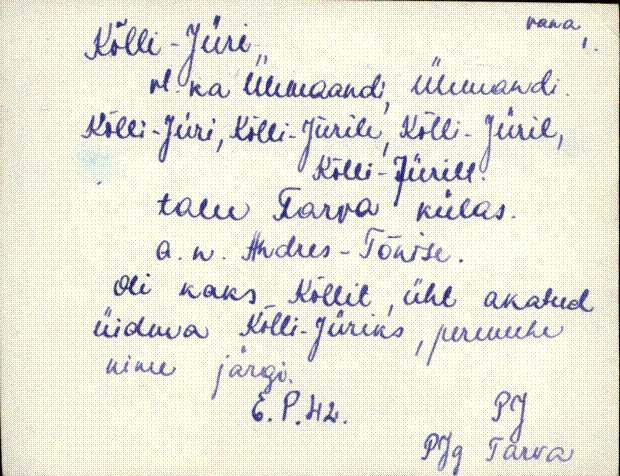 vana,
Kõlli-Jüri
vt. ka Ülemaandi, Ülemandi.
Kõlli-Jüri, Kõlli-Jürile, Kõlli-Jüril,
Kõlli-Jürilt.
talu Tarva külas.
a. n. Andres-Tõnise.
Oli kaks Kõllit, üht akatud
üidma Kõlli-Jüriks, peremehe
nime järgi.
E. P. 42.
PJ
PJg Tarva